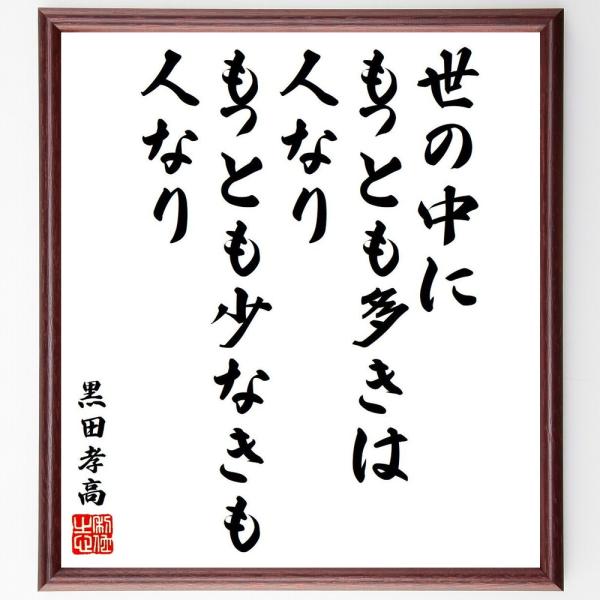 世の中に
もっとも多きは
人なり
もっとも少なきも
人なり
黒田孝高